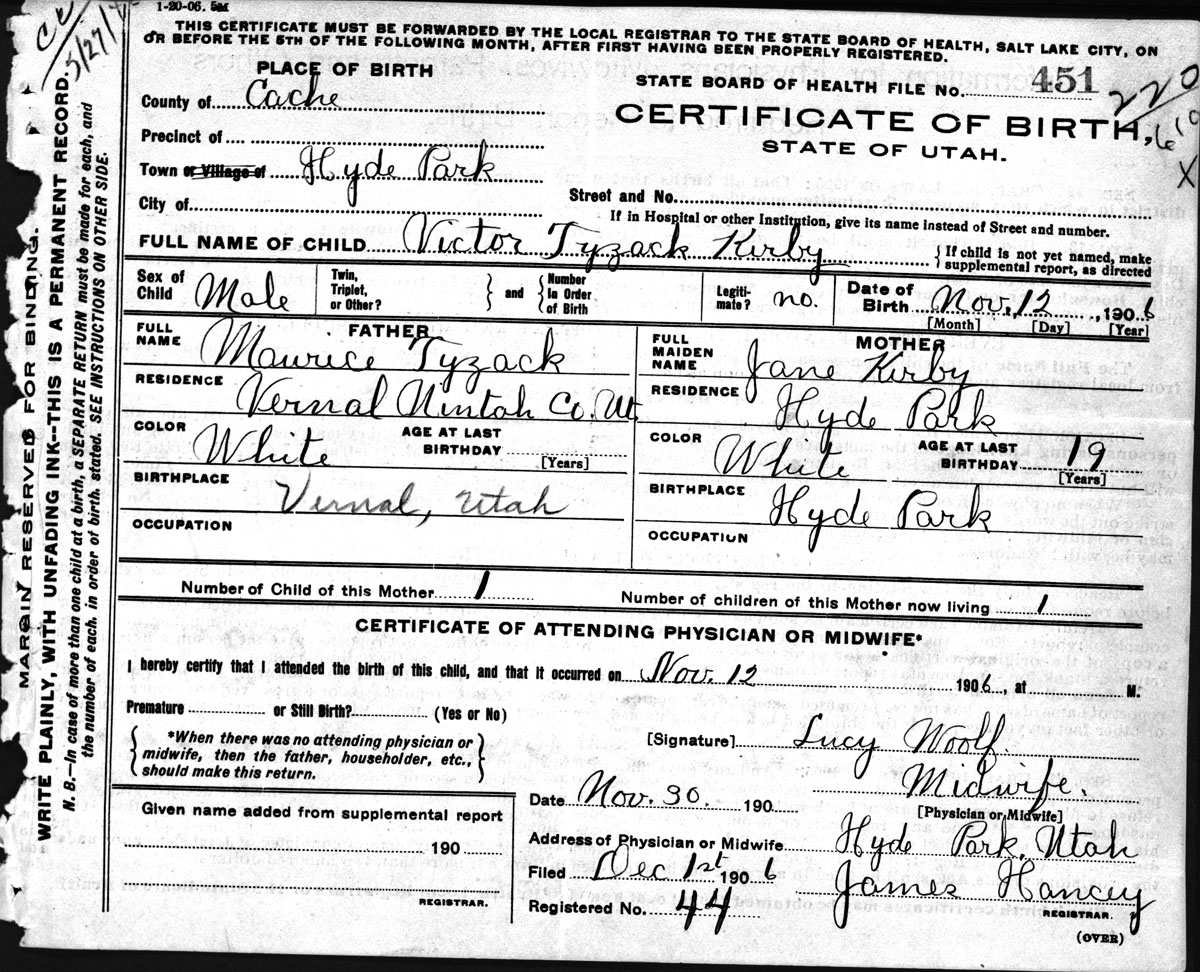 1-20-06. 5M
THIS CERTIFICATE MUST BE FORWARDED BY THE LOCAL REGISTRAR TO THE STATE BOARD OF HEALTH, SALT LAKE CITY, ON
OR BEFORE THE 5TH OF THE FOLLOWING MONTH, AFTER FIRST HAVING BEEN PROPERLY REGISTERED.
PLACE OF BIRTH
STATE BOARD OF HEALTH FILE No. 451
220
610
X
County of Cache
CERTIFICATE OF BIRTH,
STATE OF UTAH.
Precinct of
Town or Village of Hyde Park
Street and No.
City of
If in Hospital or other Institution, give its name instead of Street and number.
FULL NAME OF CHILD Victor Tyzack Kirby { If child is not yet named, make
supplemental report, as directed
Sex of Child Male Twin, Triplet, or Other? } and { Number In Order of Birth Legiti-mate? no. Date of Birth Nov. 12, 1906
[Month] [Day] [Year]
FATHER
FULL NAME Maurice Tyzack
RESIDENCE Vernal Uintah Co. Ut.
COLOR White AGE AT LAST BIRTHDAY [Years]
BIRTHPLACE Vernal, Utah
OCCUPATION
MOTHER
FULL MAIDEN NAME Jane Kirby
RESIDENCE Hyde Park
COLOR White AGE AT LAST BIRTHDAY 19 [Years]
BIRTHPLACE Hyde Park
OCCUPATION
Number of Child of this Mother 1 Number of children of this Mother now living 1
CERTIFICATE OF ATTENDING PHYSICIAN OR MIDWIFE*
I hereby certify that I attended the birth of this child, and that it occurred on Nov. 12 1906, at M.
Premature or Still Birth? (Yes or No)
{ *When there was no attending physician or
midwife, then the father, householder, etc.,
should make this return. }
[Signature] Lucy Woolf.
Midwife.
[Physician or Midwife]
Date Nov. 30. 190
Address of Physician or Midwife Hyde Park, Utah
Filed Dec 1st 1906 James Hancey
REGISTRAR.
Registered No. 44
(OVER)
Given name added from supplemental report
190
REGISTRAR.
MARGIN RESERVED FOR BINDING.
WRITE PLAINLY, WITH UNFADING INK--THIS IS A PERMANENT RECORD.
N. B.—In case of more than one child at a birth, a SEPARATE RETURN must be made for each, and
the number of each, in order of birth, stated. SEE INSTRUCTIONS ON OTHER SIDE.